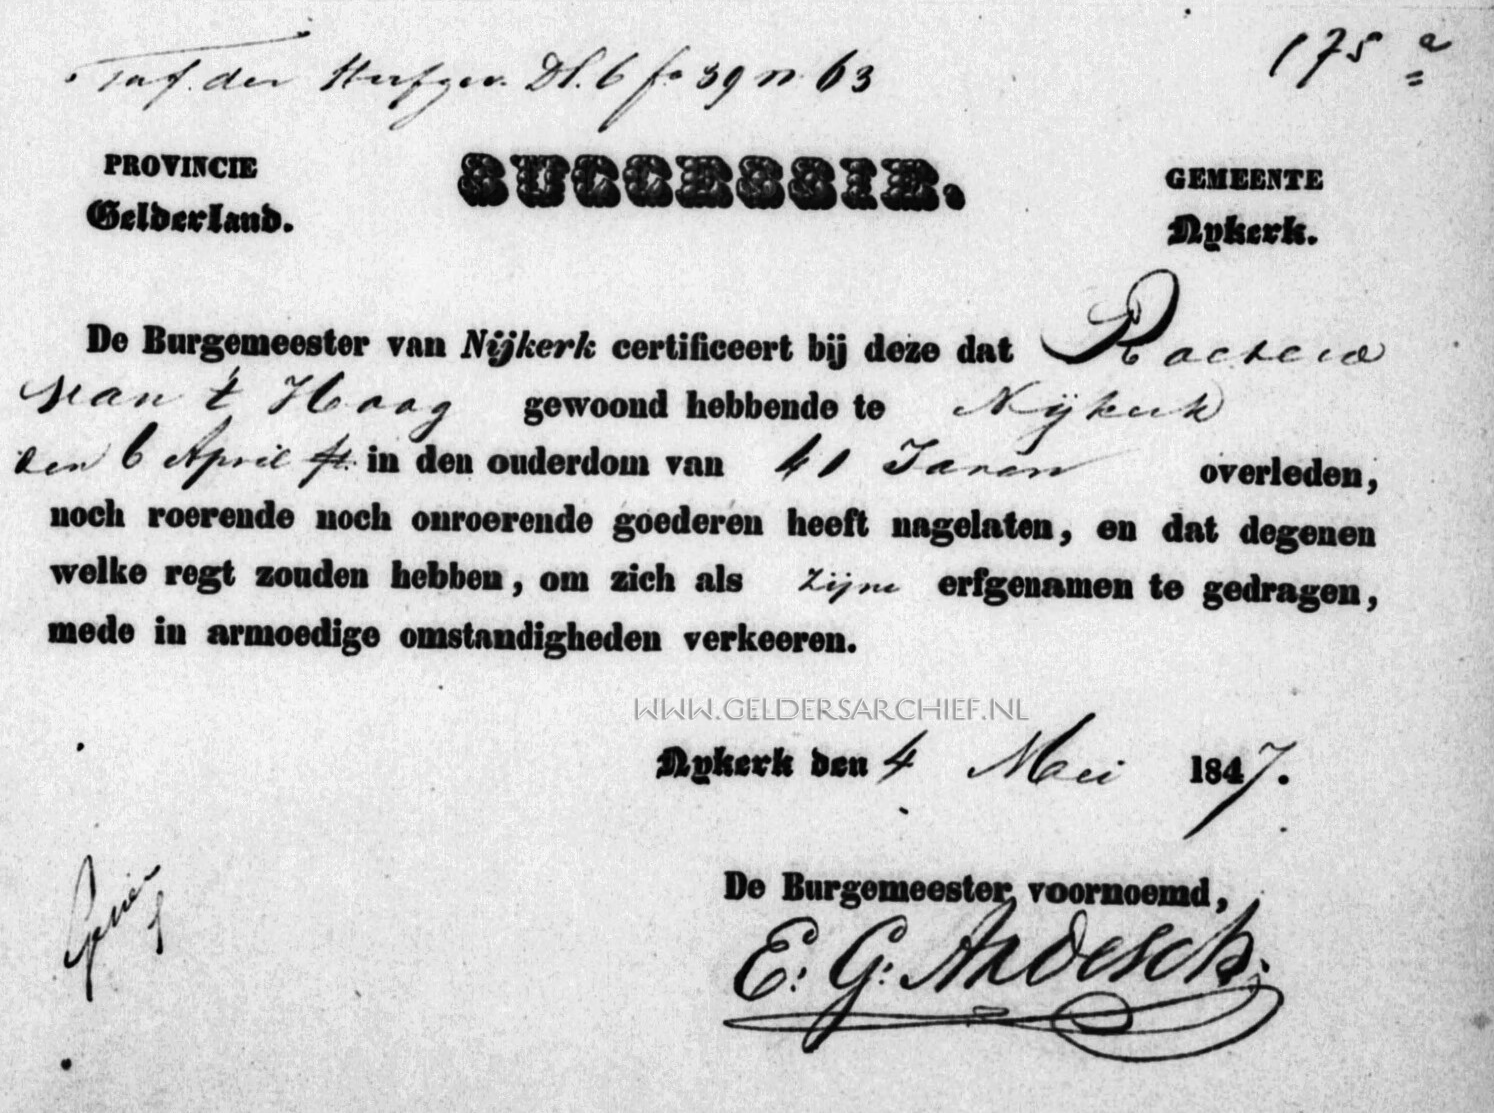 Taf. der Sterfgev. Dl. 6 fo 39 n 63
175 a
PROVINCIE
Gelderland.
SUCCESSIE.
GEMEENTE
Nykerk.
De Burgemeester van Nijkerk certificeert bij deze dat
van 't Haag gewoond hebbende te Nijkerk
den 6 April in den ouderdom van 41 Jaren overleden,
noch roerende noch onroerende goederen heeft nagelaten, en dat degenen
welke regt zouden hebben, om zich als zijne erfgenamen te gedragen,
mede in armoedige omstandigheden verkeeren.
WWW.GELDERSARCHIEF.NL
Nykerk den 4 Mei 1847.
De Burgemeester voornoemd,
E: G: Ardesch.